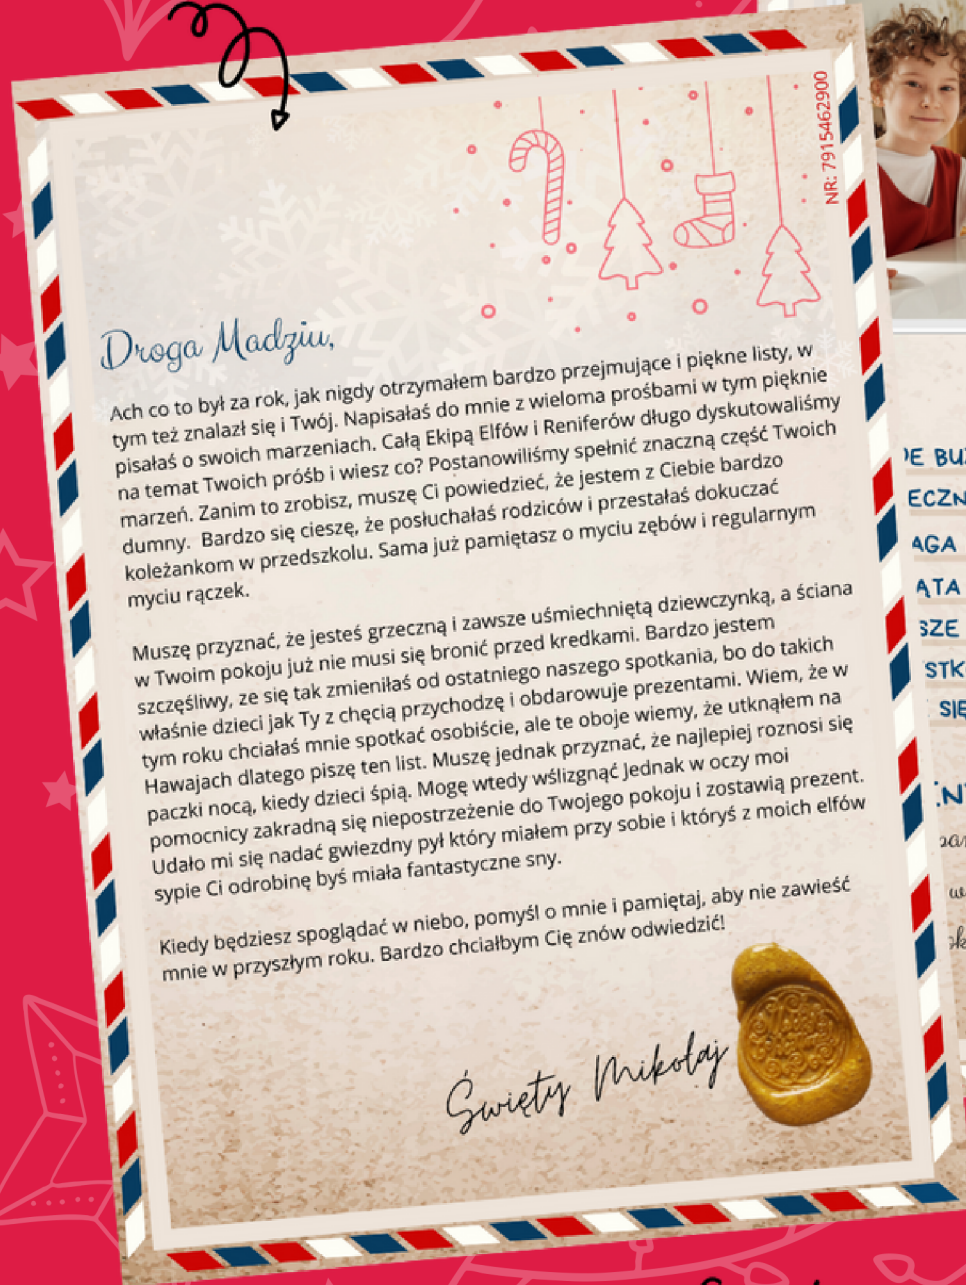 NR: 7915462900
Droga Madziu,
Ach co to był za rok, jak nigdy otrzymałem bardzo przejmujące i piękne listy, w
tym też znalazł się i Twój. Napisałaś do mnie z wieloma prośbami w tym pięknie
pisałaś o swoich marzeniach. Całą Ekipą Elfów i Reniferów długo dyskutowaliśmy
na temat Twoich próśb i wiesz co? Postanowiliśmy spełnić znaczną część Twoich
marzeń. Zanim to zrobisz, muszę Ci powiedzieć, że jestem z Ciebie bardzo
dumny. Bardzo się cieszę, że posłuchałaś rodziców i przestałaś dokuczać
koleżankom w przedszkolu. Sama już pamiętasz o myciu zębów i regularnym
myciu rączek.
Muszę przyznać, że jesteś grzeczną i zawsze uśmiechniętą dziewczynką, a ściana
w Twoim pokoju już nie musi się bronić przed kredkami. Bardzo jestem
szczęśliwy, ze się tak zmieniłaś od ostatniego naszego spotkania, bo do takich
właśnie dzieci jak Ty z chęcią przychodzę i obdarowuje prezentami. Wiem, że w
tym roku chciałaś mnie spotkać osobiście, ale te oboje wiemy, że utknąłem na
Hawajach dlatego piszę ten list. Muszę jednak przyznać, że najlepiej roznosi się
paczki nocą, kiedy dzieci śpią. Mogę wtedy wślizgnąć Jednak w oczy moi
pomocnicy zakradną się niepostrzeżenie do Twojego pokoju i zostawią prezent.
Udało mi się nadać gwiezdny pył który miałem przy sobie i któryś z moich elfów
sypie Ci odrobinę byś miała fantastyczne sny.
Kiedy będziesz spoglądać w niebo, pomyśl o mnie i pamiętaj, aby nie zawieść
mnie w przyszłym roku. Bardzo chciałbym Cię znów odwiedzić!
Święty Mikołaj
SZE
SIĘ